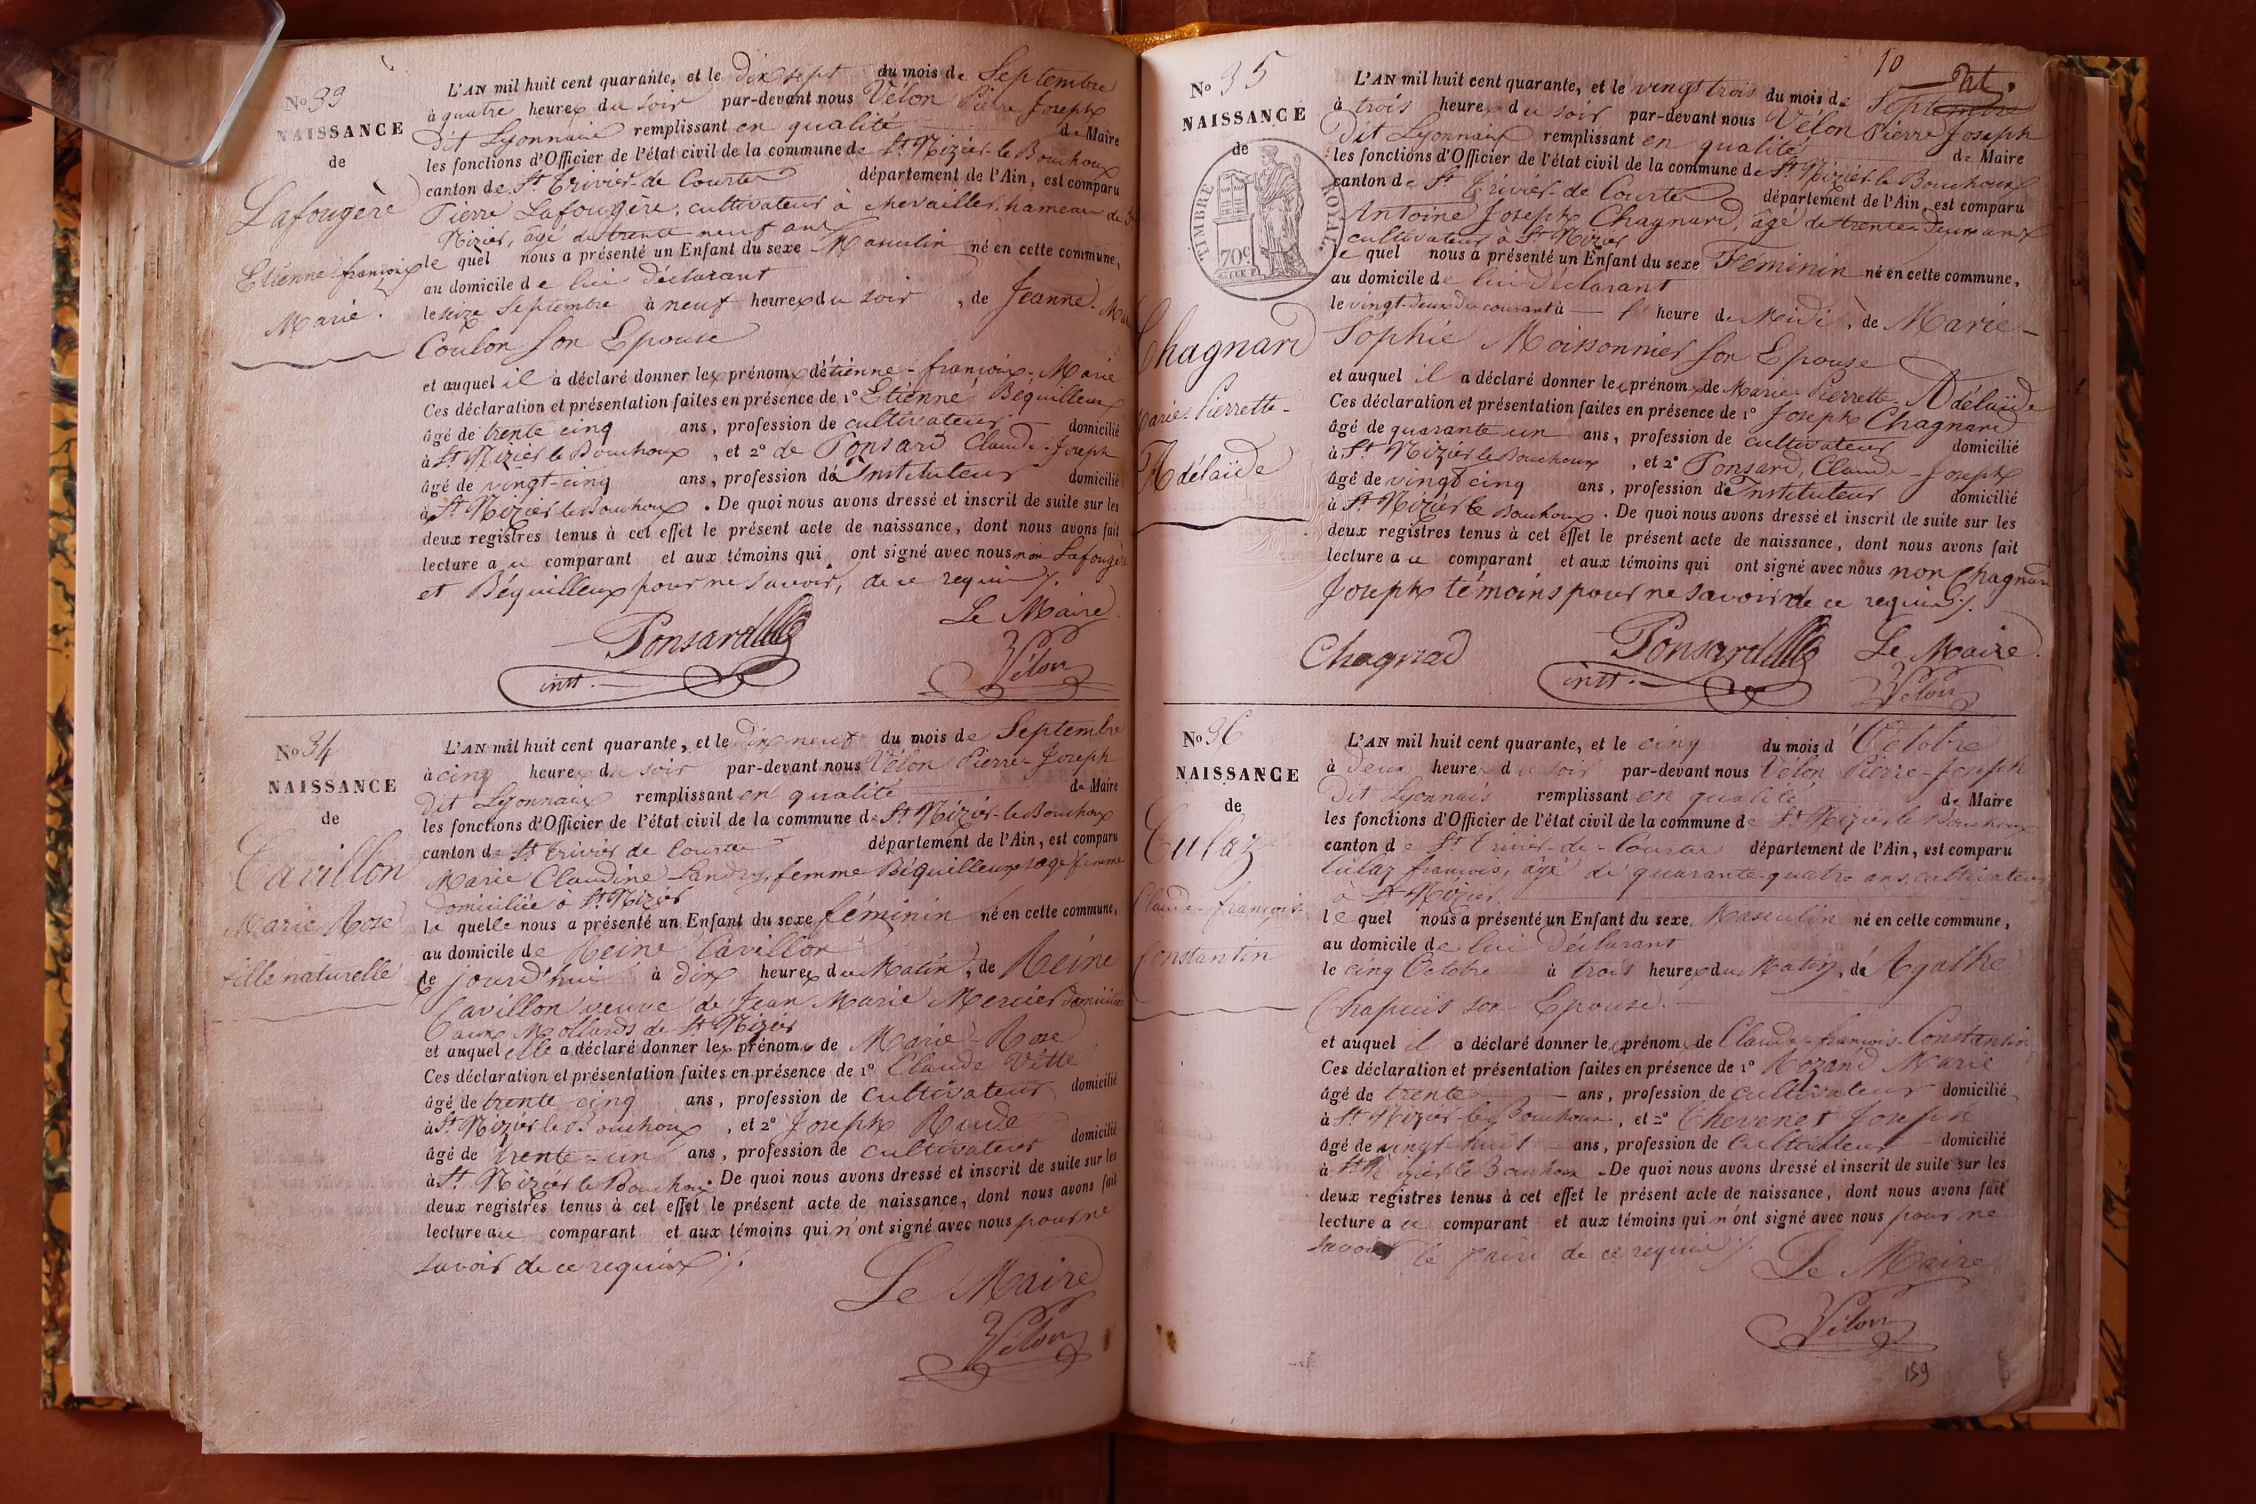 No 33
NAISSANCE
de
Lafougère
Etienne françois
Marie.
L'AN mil huit cent quarante, et le dix sept du mois de Septembre
à quatre heures du soir par-devant nous Vélon Pierre Joseph
dit Lyonnais remplissant en qualité de Maire
les fonctions d'Officier de l'état civil de la commune de St Nizier-le Bouchoux
canton de St Trivier-de Courtes département de l'Ain, est comparu
Pierre Lafougère, cultivateur à chevailler, hameau de St
Nizier, âgé de trente neuf ans
le quel nous a présenté un Enfant du sexe Masculin né en cette commune,
au domicile de lui déclarant
le seize Septembre à neuf heures du soir, de Jeanne-
Coulon son Epouse
et auquel il a déclaré donner les prénoms d'étienne-françois-Marie
Ces déclaration et présentation faites en présence de 1° Etienne Béquilleux
âgé de trente cinq ans, profession de cultivateur domicilié
à St Nizier le Bouchoux, et 2° de Ponsard Claude-Joseph
âgé de vingt-cinq ans, profession dé Instituteur domicilié
à St Nizier le Bouchoux. De quoi nous avons dressé et inscrit de suite sur les
deux registres tenus à cet effet le présent acte de naissance, dont nous avons fait
lecture au comparant et aux témoins qui ont signé avec nous non Lafougère
et Béquilleux pour ne savoir, de ce requis
Le Maire
Ponsard
instr.
Vélon
No 34
NAISSANCE
de
Cavillon
Marie Rose
fille naturelle
L'AN mil huit cent quarante, et le dix neuf du mois de Septembre
à cinq heures du soir par-devant nous Vélon Pierre-Joseph
dit Lyonnais remplissant en qualité de Maire
les fonctions d'Officier de l'état civil de la commune de St Nizier-le Bouchoux
canton de St Trivier de Courtes département de l'Ain, est comparu
Marie Claudine Landry, femme Béquilleux sage femme
domiciliée à St Nizier
la quelle nous a présenté un Enfant du sexe féminin né en cette commune,
au domicile de Reine Cavillon
de jourd'hui à dix heures du Matin, de Reine
Cavillon veuve de Jean Marie Mercier domiciliée
aux Mollards de St Nizier
et auquel elle a déclaré donner les prénoms de Marie-Rose
Ces déclaration et présentation faites en présence de 1° Claude Vitte
âgé de trente cinq ans, profession de cultivateur domicilié
à St Nizier le Bouchoux, et 2° Joseph Rude
âgé de trente-un ans, profession de cultivateur domicilié
à St Nizier le Bouchoux. De quoi nous avons dressé et inscrit de suite sur les
deux registres tenus à cet effet le présent acte de naissance, dont nous avons fait
lecture au comparant et aux témoins qui n'ont signé avec nous pour ne
savoir de ce requis
Le Maire
Vélon
10
No 35
NAISSANCE
de
TIMBRE ROYAL
70c
Chagnard
Marie-Pierrette-
Adélaïde
L'AN mil huit cent quarante, et le vingt trois du mois de Septembre
à trois heures du soir par-devant nous Vélon Pierre Joseph
dit Lyonnais remplissant en qualité de Maire
les fonctions d'Officier de l'état civil de la commune de St Nizier-le Bouchoux
canton de St Trivier-de Courtes département de l'Ain, est comparu
Antoine Joseph Chagnard, âgé de trente deux ans
cultivateur à St Nizier
le quel nous a présenté un Enfant du sexe Féminin né en cette commune,
au domicile de lui déclarant
le vingt-deux du courant à l' heure de Midi, de Marie-
Sophie Moissonnier son Epouse
et auquel il a déclaré donner les prénoms de Marie-Pierrette-Adélaïde
Ces déclaration et présentation faites en présence de 1° Joseph Chagnard
âgé de quarante un ans, profession de cultivateur domicilié
à St Nizier le Bouchoux, et 2° Ponsard, Claude-Joseph
âgé de vingt cinq ans, profession de Instituteur domicilié
à St Nizier le Bouchoux. De quoi nous avons dressé et inscrit de suite sur les
deux registres tenus à cet effet le présent acte de naissance, dont nous avons fait
lecture au comparant et aux témoins qui ont signé avec nous non Chagnard
Joseph témoins pour ne savoir de ce requis
Chagnad
Ponsard
instr.
Le Maire
Vélon
No 36
NAISSANCE
de
Tulaz
Claude-françois-
Constantin
L'AN mil huit cent quarante, et le cinq du mois d'Octobre
à deux heures du soir par-devant nous Vélon Pierre-Joseph
dit Lyonnais remplissant en qualité de Maire
les fonctions d'Officier de l'état civil de la commune de St Nizier le Bouchoux
canton de St Trivier-de-Courtes département de l'Ain, est comparu
tulaz françois, âgé de quarante-quatre ans, cultivateur
à St Nizier
le quel nous a présenté un Enfant du sexe Masculin né en cette commune,
au domicile de lui déclarant
le cinq Octobre à trois heures du Matin, de Agathe
Chapuis son Epouse.
et auquel il a déclaré donner les prénoms de Claude-françois-Constantin
Ces déclaration et présentation faites en présence de 1° Rozand Marie
âgé de trente ans, profession de cultivateur domicilié
à St Nizier-le Bouchoux, et 2° Chevenet Joseph
âgé de vingt huit ans, profession de cultivateur domicilié
à St Nizier le Bouchoux. De quoi nous avons dressé et inscrit de suite sur les
deux registres tenus à cet effet le présent acte de naissance, dont nous avons fait
lecture au comparant et aux témoins qui n'ont signé avec nous pour ne
savoir le faire de ce requis
Le Maire
Vélon
159